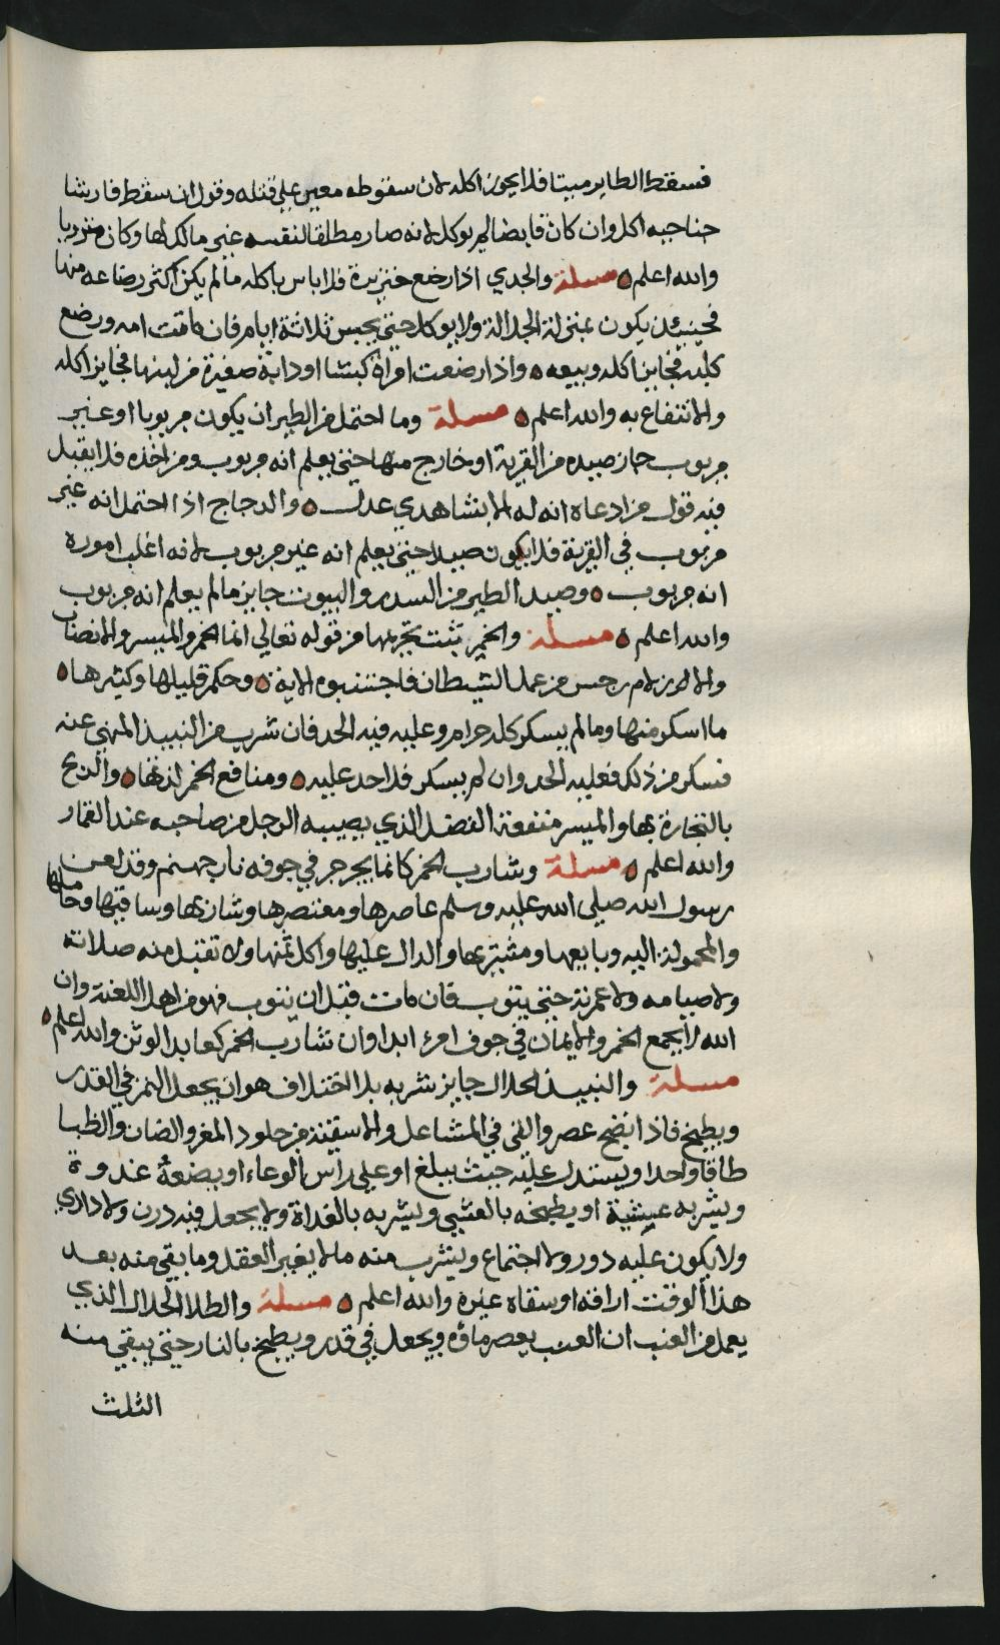 فسقط الطاير ميتا فلا يجوز اكله لان سقوطه معين علي قتله وقول ان سقط فارشا
جناحيه اكل وان كان قابضا لم يوكل لانه صار مطلقا لنفسه غير مالك لها وكان متردبا
والله اعلم ه مسلة والجدي اذا رضع خنزيرة فلا باس باكله ما لم يكن اكثر رضاعه منها
فحينئذ يكون بمنزلة الجلالة ولا يوكل حتي يحبس ثلاثة ايام فان ماتت امه ورضع
كلبه فجايز اكله وبيعه ه واذا رضعت امراة كبشا او دابة صغيرة من لبنها فجايز اكله
والانتفاع به والله اعلم ه مسلة وما احتمل من الطير ان يكون مربوبا او غير
مربوب جاز صيده من القرية او خارج منها حتي يعلم انه مربوب ومن اخذه فلا يقبل
فيه قول من ادعاه انه له الا بشاهدي عدل ه والدجاج اذا احتمل انه غير
مربوب في القرية فلا يكون صيدا حتي يعلم انه غير مربوب لانه اغلب اموره
انه مربوب ه وصيد الطير من السدر والبيوت جايز ما لم يعلم انه مربوب
والله اعلم ه مسلة والخمر ثبت تحريمها من قوله تعالي انما الخمر والميسر والانصاب
والازلام رجس من عمل الشيطان فاجتنبوه الاية ه وحكم قليلها وكثيرها ه
ما اسكر منها وما لم يسكر كله حرام وعليه فيه الحد فان شرب من النبيذ المنهي عنه
فسكر من ذلك فعليه الحد وان لم يسكر فلا حد عليه ه ومنافع الخمر لذتها ه والربح
بالتجارة بها والميسر منفعة الفضل الذي يصيبه الرجل من صاحبه عند القمار
والله اعلم ه مسلة وشارب الخمر كانما يجرجر في جوفه نار جهنم وقد لعن
رسول الله صلي الله عليه وسلم عاصرها ومعتصرها وشاربها وساقيها وحاملها
والمحمولة اليه وبايعها ومشتريها والدال عليها واكل ثمنها ولا تقبل منه صلاته
ولا صيامه ولا عمرته حتي يتوب فان مات قبل ان يتوب فهو من اهل اللعنة وان
الله لا يجمع الخمر والايمان في جوف امرئ ابدا وان شارب الخمر كعابد الوثن والله اعلم ه
مسلة والنبيذ الحلال جايز شربه بلا اختلاف هو ان يجعل التمر في القدر
ويطبخ فاذا نضج عصر والقي في المشاعل والاسقية من جلود المغر والضان والظبا
طاقا واحدا ويستدل عليه حيث يبلغ او علي راس الوعاء او يضعه غدوة
ويشربه عيشية او يطبخه بالعشي ويشربه بالغداة ولا يجعل فيه درن ولا داذي
ولا يكون عليه دور ولا اجتماع ويشرب منه ما لا يغير العقد وما بقي منه بعد
هذا الوقت اراقه او سقاه غيره والله اعلم ه مسلة والطلا الحلال الذي
يعمل من العنب ان العنب يعصر ماؤه ويجعل في قدر ويطبخ بالنار حتي يبقي منه
الثلث